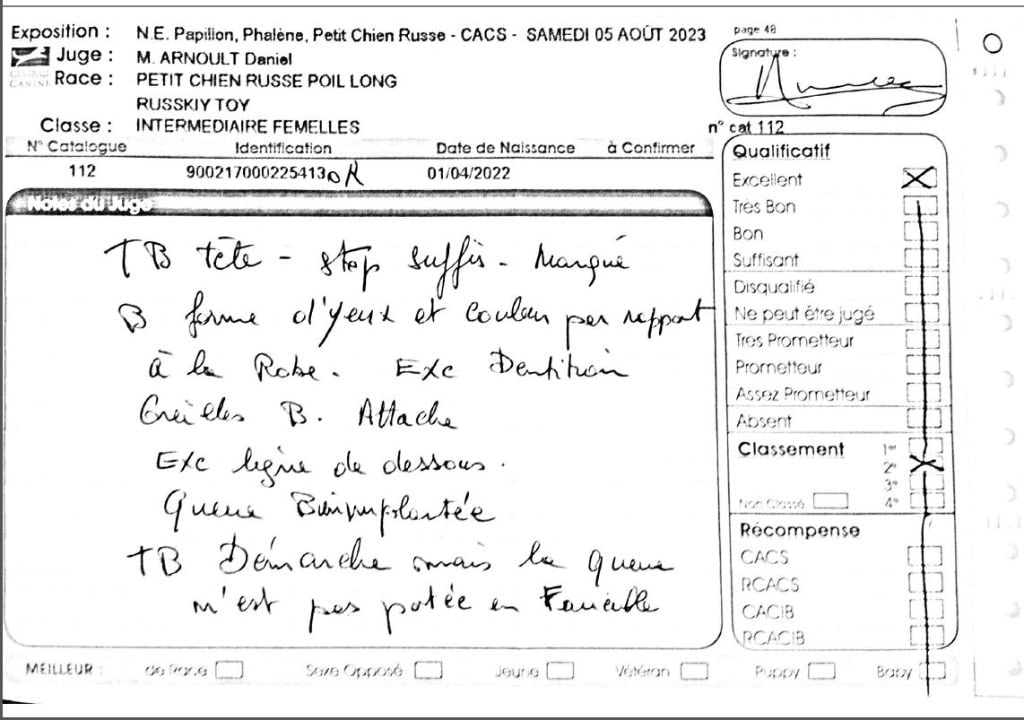 Exposition : N.E. Papillon, Phalène, Petit Chien Russe - CACS - SAMEDI 05 AOÛT 2023
page 48
Juge : M. ARNOULT Daniel
Signature :
CENTRALE CANINE
Race : PETIT CHIEN RUSSE POIL LONG
RUSSKIY TOY
Classe : INTERMEDIAIRE FEMELLES
n° cat 112
N° Catalogue Identification Date de Naissance à Confirmer
112 900217000225413 OR 01/04/2022
Notes du Juge
TB tête - stop suffis. Marqué
B forme d'yeux et couleur par rapport
à la Robe. Exc Dentition
Oreilles B. Attache
Exc ligne de dessous.
Queue Bien implantée
TB Démarche mais la queue
n'est pas portée en Faucille
Qualificatif
Excellent
Très Bon
Bon
Suffisant
Disqualifié
Ne peut être jugé
Tres Prometteur
Prometteur
Assez Prometteur
Absent
Classement 1er
2e
3e
Non Classé 4e
Récompense
CACS
RCACS
CACIB
RCACIB
MEILLEUR : de Race Sexe Opposé Jeune Vétéran Puppy Baby